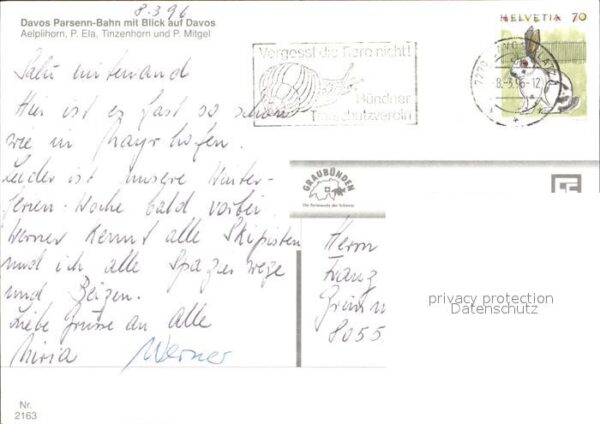 8.3.96
Davos Parsenn-Bahn mit Blick auf Davos
Aelplihorn, P. Ela, Tinzenhorn und P. Mitgel
HELVETIA 70
Vergesst die Tiere nicht!
Bündner
Tierschutzverein
8.-3.96-12
Salü mitenand
Hier ist es fast so schön
wie in Mayrhofen.
Leider ist unsere Winter-
ferien-Woche bald vorbei.
Werner kennt alle Skipisten
und ich alle Spazierwege
und Beizen.
Liebe Grüsse an alle
Werner
GRAUBÜNDEN
Die Ferienecke der Schweiz
Herrn
Franz
8055
privacy protection
Datenschutz
Nr.
2163